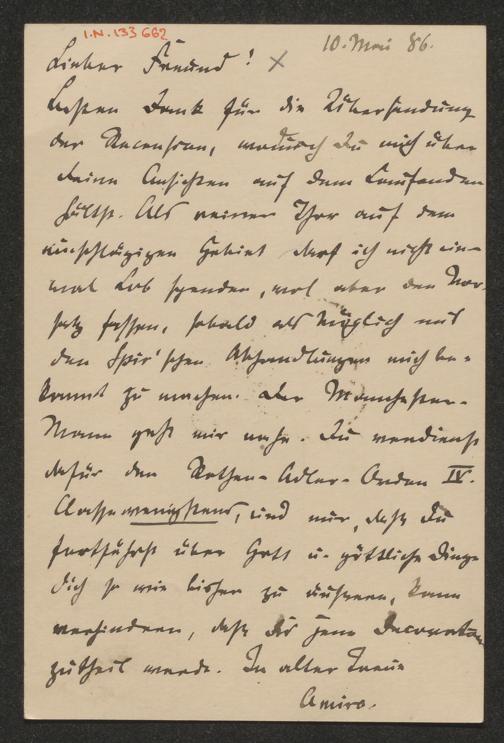 I.N. 133 662
10. Mai 86.
Lieber Freund!
Besten Dank für die Übersendung
der Recension, wodurch Du mich über
deine Ansichten auf dem Laufenden
hältst. Als reiner Thor auf dem
einschlägigen Gebiet darf ich nicht ein-
mal Lob spenden, wol aber den Vor-
satz fassen, sobald als möglich mit
den Spir'schen Abhandlungen mich be-
kannt zu machen. Der Manchester-
Mann geht mir nahe. Du verdienst
dafür den Rothen-Adler-Orden IV.
Classe wenigstens, und nur, daß Du
fortfährst über Gott u. göttliche Dinge
dich so wie bisher zu äußern, kann
verhindern, daß dir jene Decoration
zutheil werde. In alter Treue
Amira.